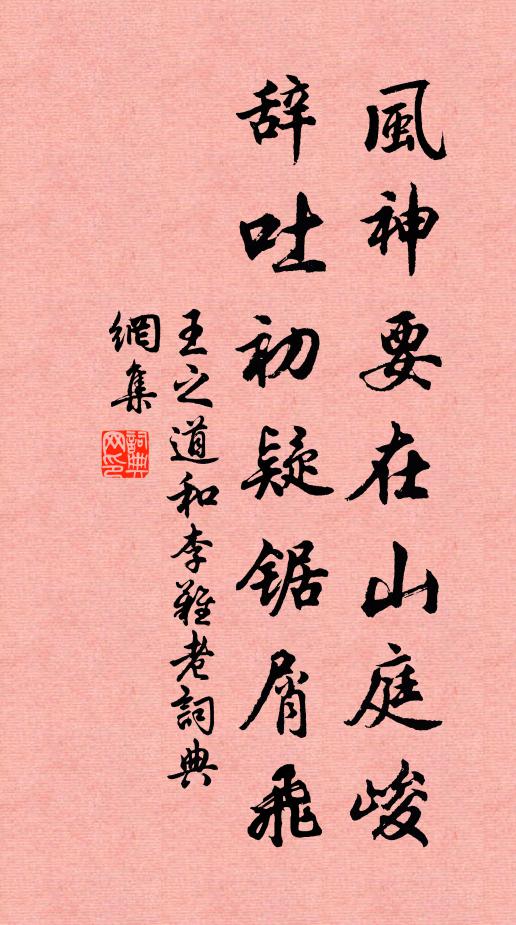 風神要在山庭峻
辞吐初疑锯屑飛
王之道和李難老詞典
網集
詞典
网印